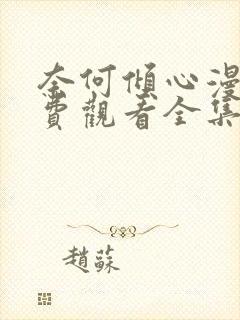 奈何傾心漫
費觀看全集
趙蘇